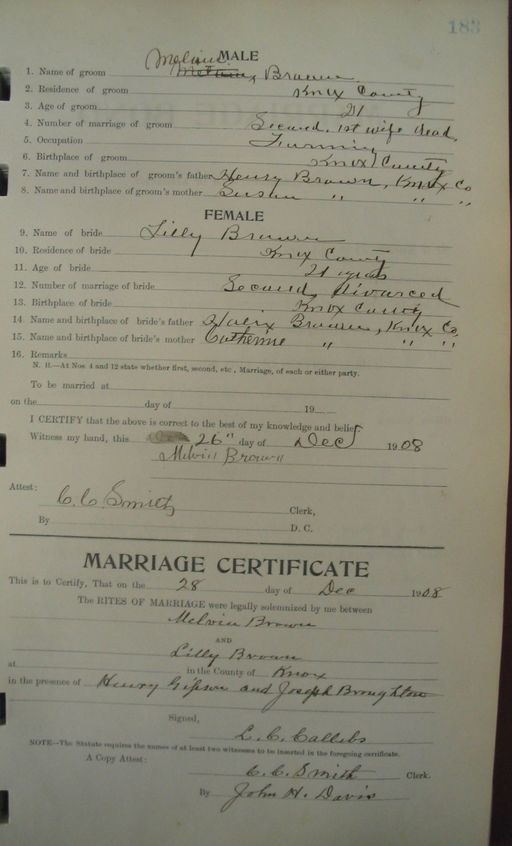 183
MALE
1. Name of groom Melvin Brown
2. Residence of groom Knox County
3. Age of groom 21
4. Number of marriage of groom Second, 1st wife dead,
5. Occupation Farming
6. Birthplace of groom Knox County
7. Name and birthplace of groom's father Henry Brown, Knox Co
8. Name and birthplace of groom's mother Susan " " "
FEMALE
9. Name of bride Lilly Brown
10. Residence of bride Knox County
11. Age of bride 21 years
12. Number of marriage of bride Second, divorced
13. Birthplace of bride Knox County
14. Name and birthplace of bride's father Brown, Knox Co,
15. Name and birthplace of bride's mother Catherine " " "
16. Remarks
N. B.—At Nos. 4 and 12 state whether first, second, etc, Marriage, of each or either party.
To be married at
on the day of 19
I CERTIFY that the above is correct to the best of my knowledge and belief.
Witness my hand, this 26" day of Dec 1908
Melvin Brown
Attest: C. C. Smith Clerk,
By D. C.
MARRIAGE CERTIFICATE
This is to Certify, That on the 28 day of Dec 1908
The RITES OF MARRIAGE were legally solemnized by me between
Melvin Brown
AND
Lilly Brown
at in the County of Knox
in the presence of Henry Gipson and Joseph Broughton
Signed,
L. C. Callebs
NOTE—The Statute requires the names of at least two witnesses to be inserted in the foregoing certificate.
A Copy Attest:
C. C. Smith Clerk.
By John H. Davis